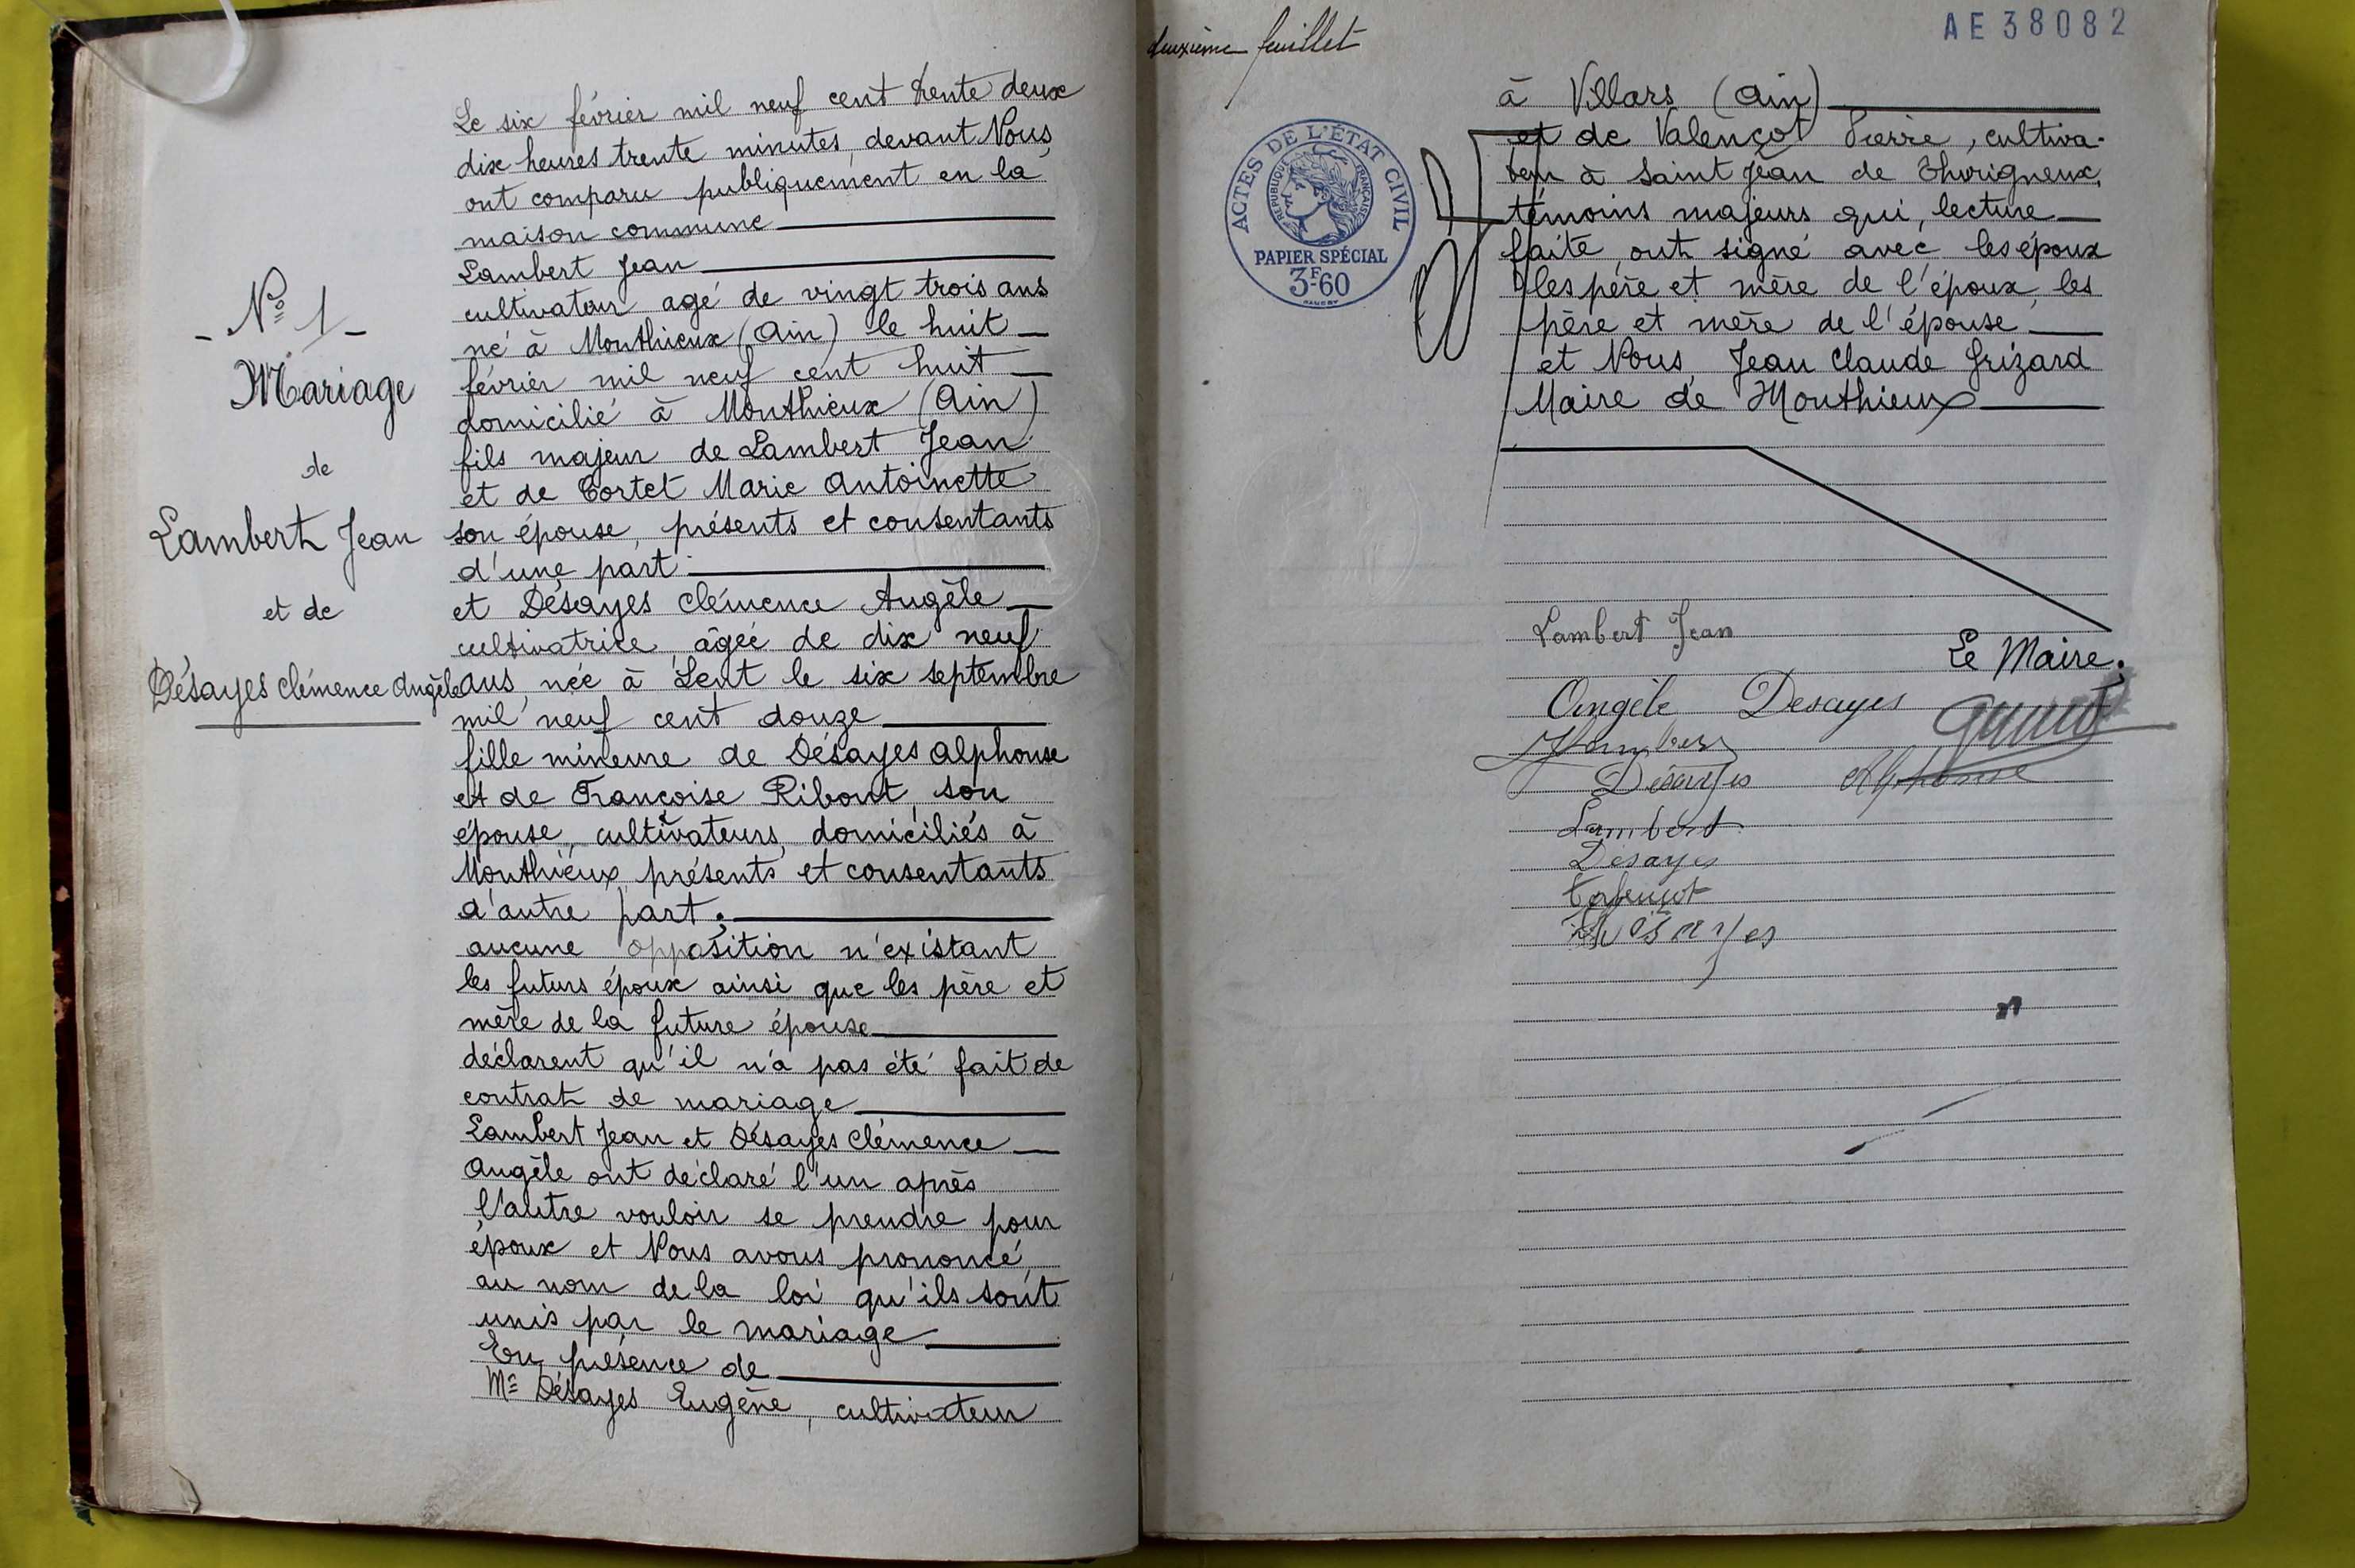 - Nº 1 -
Mariage
de
Lambert Jean
et de
Désayes Clémence Angèle
Le six février mil neuf cent trente deux
dix heures trente minutes, devant Nous,
ont comparu publiquement en la
maison commune
Lambert Jean
cultivateur agé de vingt trois ans
né à Monthieux (Ain) le huit
février mil neuf cent huit
domicilié à Monthieux (Ain)
fils majeur de Lambert Jean
et de Cortet Marie Antoinette
son épouse, présents et consentants
d'une part.
et Désayes Clémence Angèle
cultivatrice, âgée de dix neuf
ans, née à Lent le six septembre
mil neuf cent douze
fille mineure de Désayes Alphonse
et de Françoise Ribout, son
épouse, cultivateurs, domiciliés à
Monthieux, présents et consentants
d'autre part.
aucune opposition n'existant
les futurs époux ainsi que les père et
mère de la future épouse
déclarent qu'il n'a pas été fait de
contrat de mariage
Lambert Jean et Désayes Clémence
Angèle ont déclaré l'un après
l'autre vouloir se prendre pour
époux et Nous avons prononcé,
au nom de la loi qu'ils sont
unis par le mariage
En présence de
Mr Désayes Eugène, cultivateur
deuxième feuillet
AE 38082
ACTES DE L'ÉTAT CIVIL
RÉPUBLIQUE FRANÇAISE
PAPIER SPÉCIAL
3F60
à Villars (Ain)
et de Valençot Pierre, cultiva-
teur à Saint Jean de Thurigneux,
témoins majeurs qui, lecture
faite, ont signé avec les époux
les père et mère de l'époux, les
père et mère de l'épouse
et Nous, Jean Claude Grizard
Maire de Monthieux
Lambert Jean
Le Maire.
Angèle Desayes
Désayes Alphonse
Lambert
Desayes
Désayes